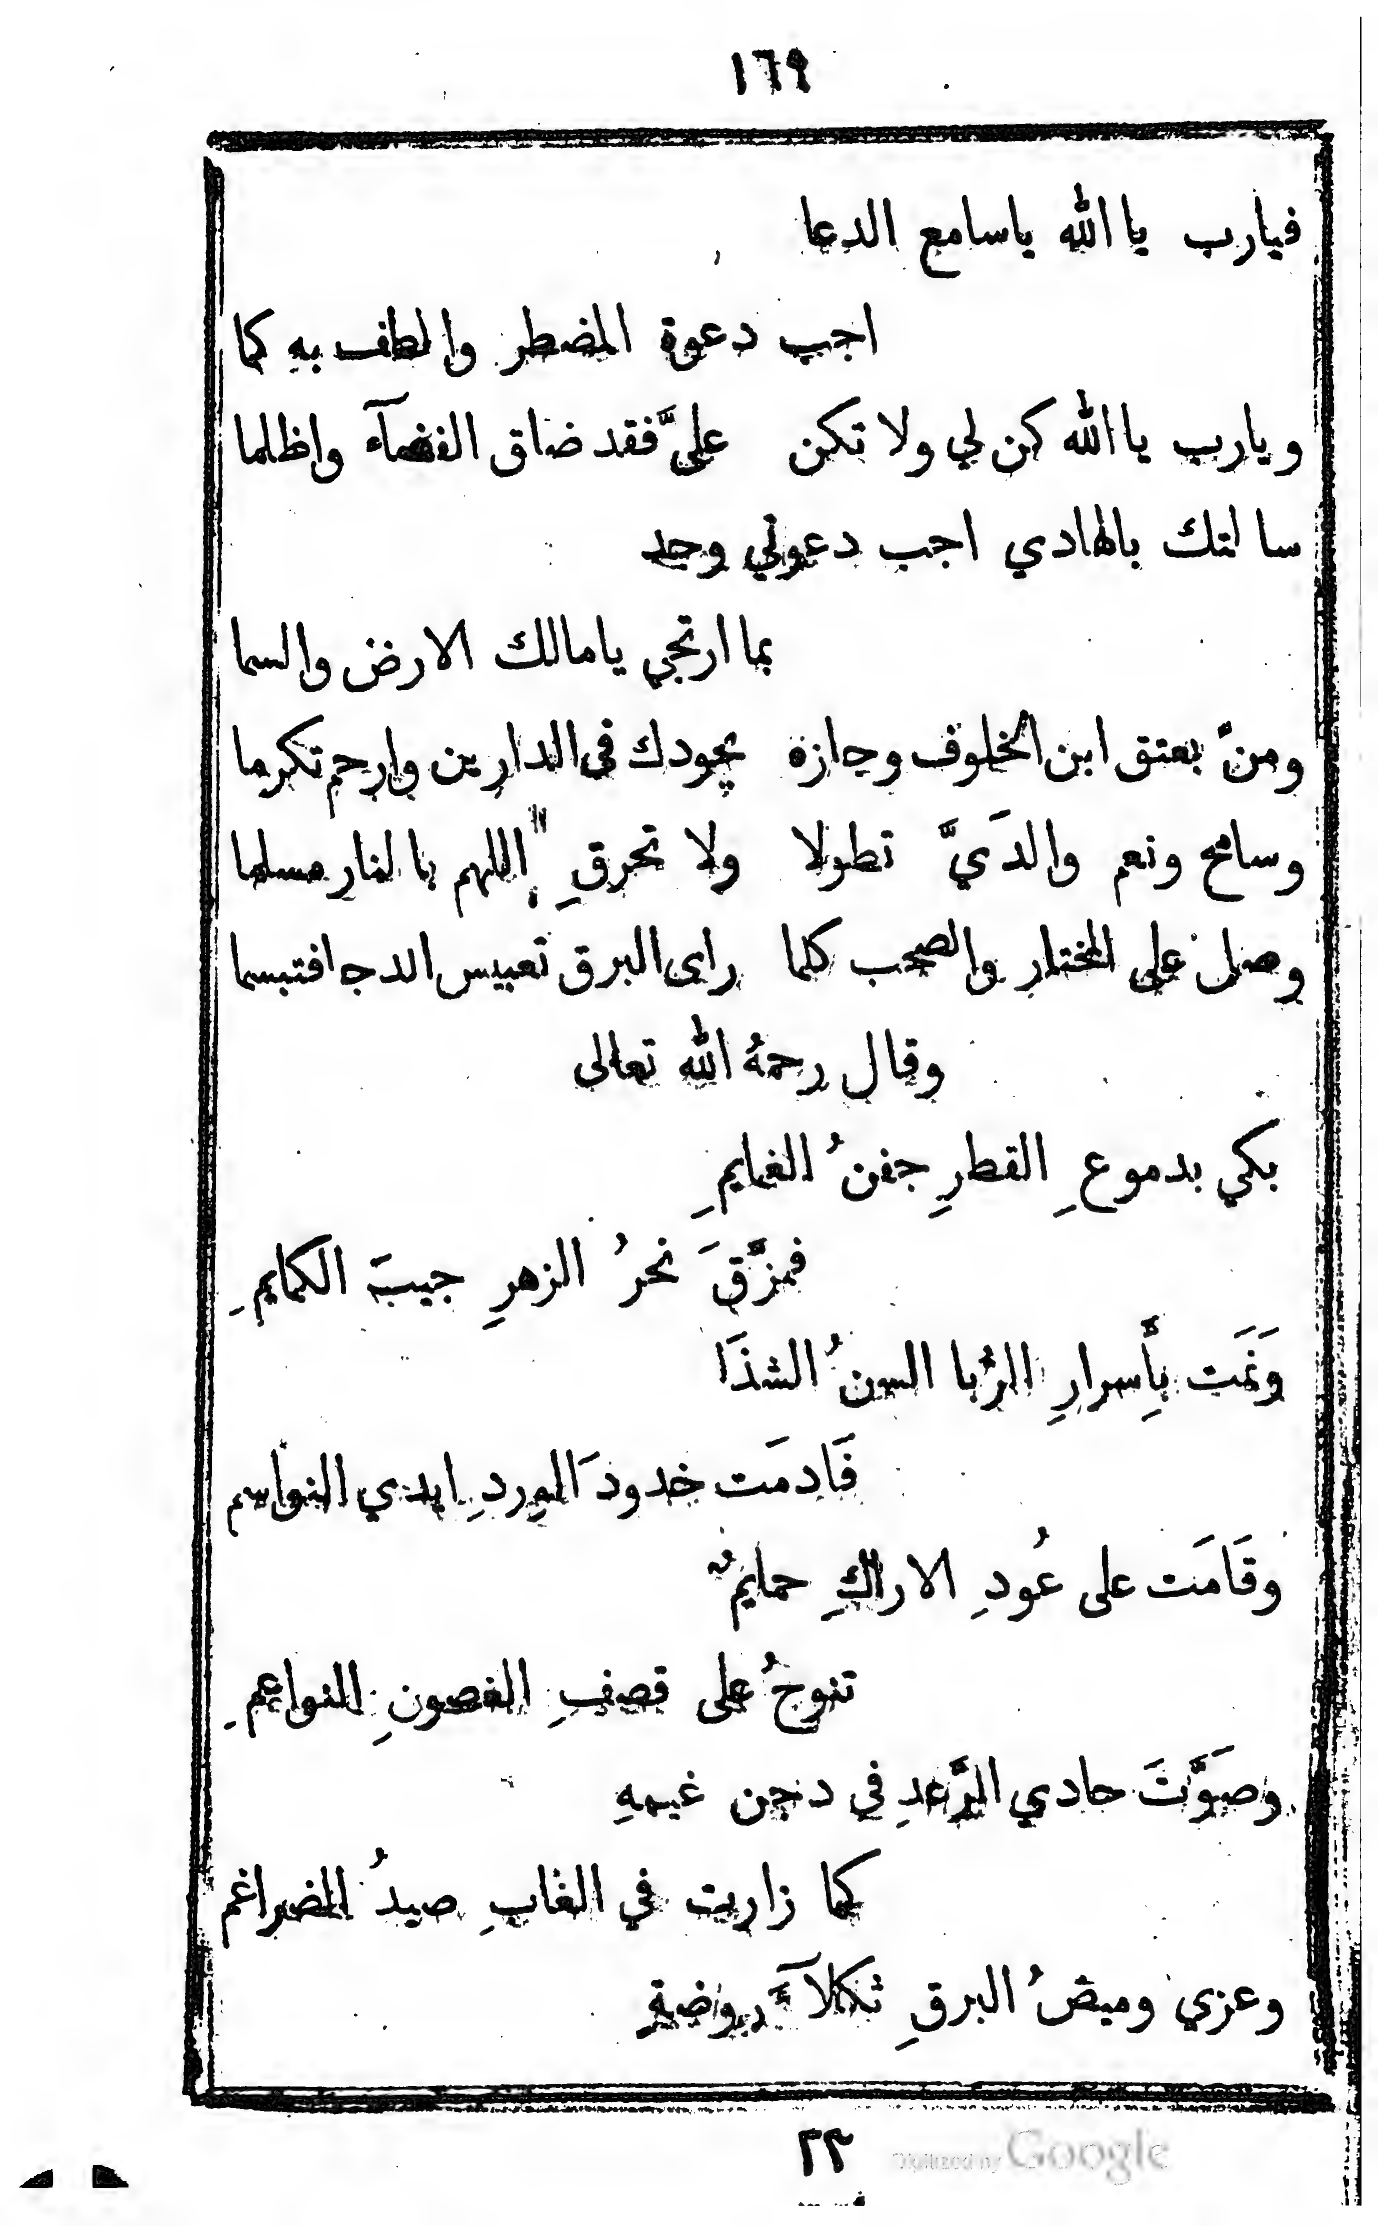 ١٦٩
فيارب يا الله ياسامع الدعا
اجب دعوة المضطر والطف به كما
ويارب يا الله كن لي ولا تكن عليَّ فقد ضاق الفضآء واظلما
سالتك بالهادي اجب دعوتي وجد
بما ارتجي يامالك الارض والسما
ومنّ بعتق ابن الخلوف وجازه بجودك فى الدارين وارحم تكرما
وسامح ونعم والدَيَّ تطولا ولا تحرقِ اللهم بالنار مسلما
وصل على المختار والصحب كلما راى البرق تعبيس الدجا فتبسما
وقال رحمهُ الله تعالى
بكي بدموعِ القطرِ جفنُ الغمايمِ
فمزَّقَ نحرُ الزهرِ جيبَ الكمايمِ
وَنَمَت بِأَسرارِ الرُبا السنُ الشذَا
فَادمَت خدودَ الوردِ ايدي النواسم
وقَامَت على عُودِ الاراكِ حمايمٌ
تنوحُ على قصفِ الغصونِ النواعمِ
وصَوَّتَ حادي الرَّعدِ في دجن غيمهِ
كما زارت في الغابِ صيدُ الضراغم
وعزي وميضُ البرقِ ثكلآءَ روضةِ
٢٢
Digitized by Google